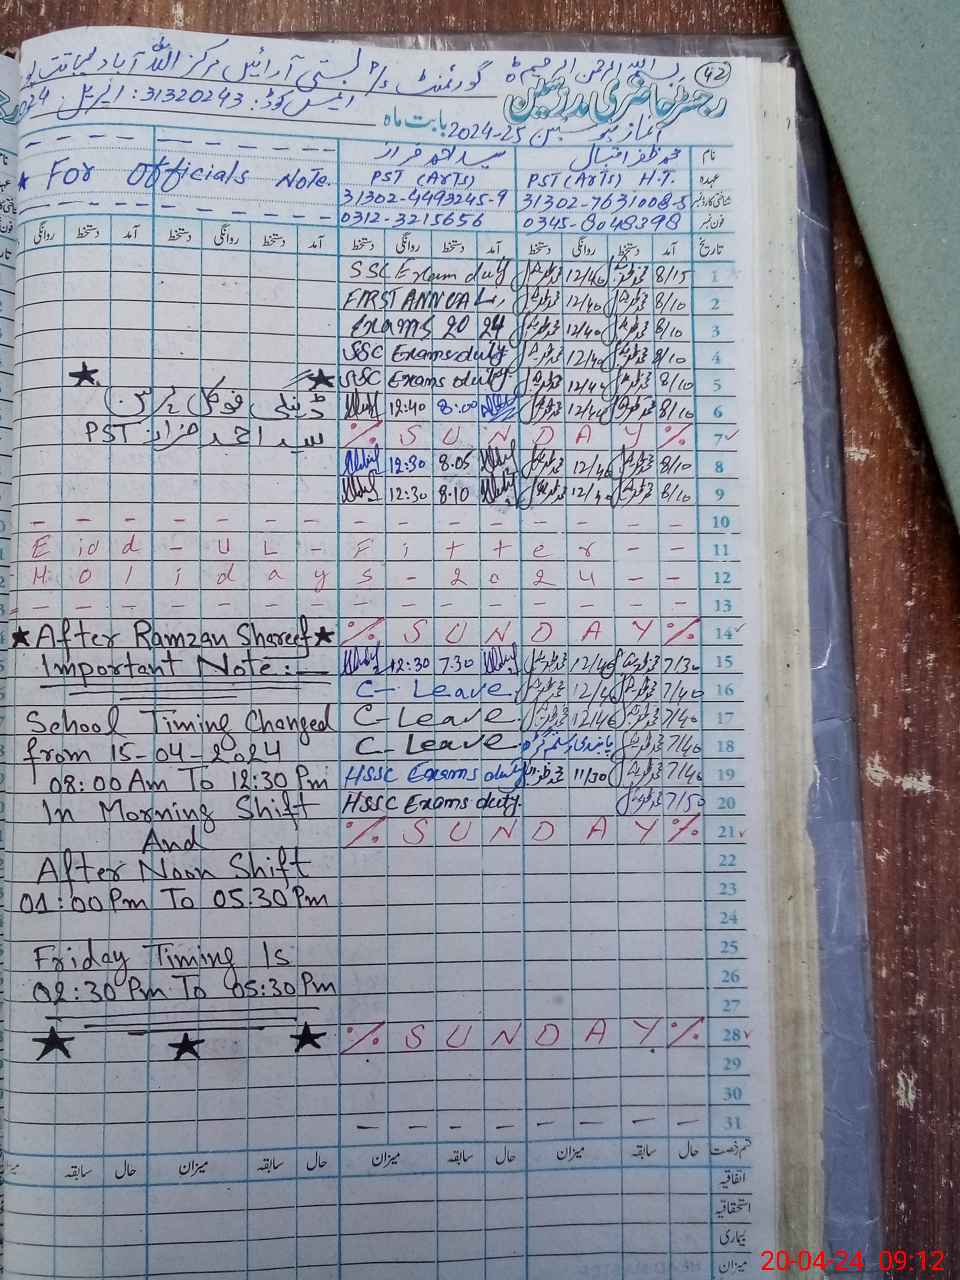 42
بسم اللہ الرحمن الرحیم
گورنمنٹ p/s بستی آرائیں مرکز اللہ آباد لیاقت پور
رجسٹر حاضری مدرسین
ایمس کوڈ: 31320243: اپریل 2024
بابت ماہ
2024-25
نام
محمد ظفر اقبال
سید احمد فراز
عہدہ
PST (Arts) H.T.
PST (Arts)
★ For Officials Note.
31302-7631008-5
31302-4993245-9
فون نمبر
0345-8048398
0312-3215656
تاریخ آمد دستخط روانگی دستخط آمد دستخط روانگی دستخط آمد دستخط روانگی آمد دستخط روانگی
1 8/15 12/40 SSC Exam duty
2 8/10 12/40 FIRST ANNUAL
3 8/10 12/40 Exams 2024
4 8/10 12/40 SSC Exams duty
5 8/10 12/40 SSC Exams duty ★ ★
6 8/10 12/40 8:00 12:40
ڈینگی فوکل پرسن
7 ٪ S U N D A Y ٪
سید احمد فراز PST
8 8/10 12/40 8.05 12:30
9 8/10 12/40 8:10 12:30
10 - - - - - - - - - - - - - -
11 Eid - UL - Fitter - -
12 Holidays - 2024 - -
13 - - - - - - - - - - - - - -
14 ٪ S U N D A Y ٪
★ After Ramzan Shareef ★
15 7/30 12/40 7.30 12:30
Important Note:-
16 7/40 12/40 C-Leave.
17 7/40 12/40 C-Leave.
School Timing Changed
18 7/40 C-Leave.
from 15-04-2024
19 7/40 11/30 HSSC Exams duty
08:00 Am To 12:30 Pm
20 7/50 HSSC Exams duty.
In Morning Shift
21 ٪ S U N D A Y ٪
And
22
After Noon Shift
23
01:00 Pm To 05:30 Pm
24
25
Friday Timing Is
26
02:30 Pm To 05:30 Pm
27
28 ٪ S U N D A Y ٪
★ ★ ★
29
30
31 - - - - - - - -
قسم رخصت حال سابقہ میزان حال سابقہ میزان حال سابقہ میزان حال سابقہ
اتفاقیہ
استحقاقیہ
بیماری
میزان
20-04-24 09:12